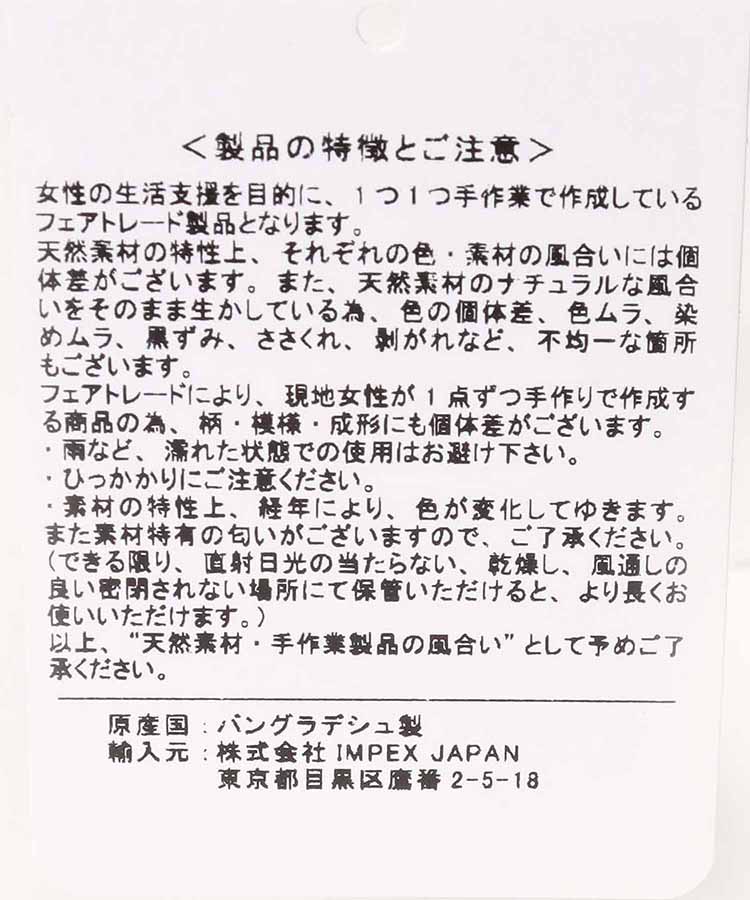 ＜製品の特徴とご注意＞
女性の生活支援を目的に、1つ1つ手作業で作成している
フェアトレード製品となります。
天然素材の特性上、それぞれの色・素材の風合いには個
体差がございます。また、天然素材のナチュラルな風合
いをそのまま生かしている為、色の個体差、色ムラ、染
めムラ、黒ずみ、ささくれ、剥がれなど、不均一な箇所
もございます。
フェアトレードにより、現地女性が1点ずつ手作りで作成す
る商品の為、柄・模様・成形にも個体差がございます。
・雨など、濡れた状態での使用はお避け下さい。
・ひっかかりにご注意ください。
・素材の特性上、経年により、色が変化してゆきます。
また素材特有の匂いがございますので、ご了承ください。
(できる限り、直射日光の当たらない、乾燥し、風通しの
良い密閉されない場所にて保管いただけると、より長くお
使いいただけます。)
以上、“天然素材・手作業製品の風合い”として予めご了
承ください。
原産国：バングラデシュ製
輸入元：株式会社 IMPEX JAPAN
東京都目黒区鷹番2-5-18